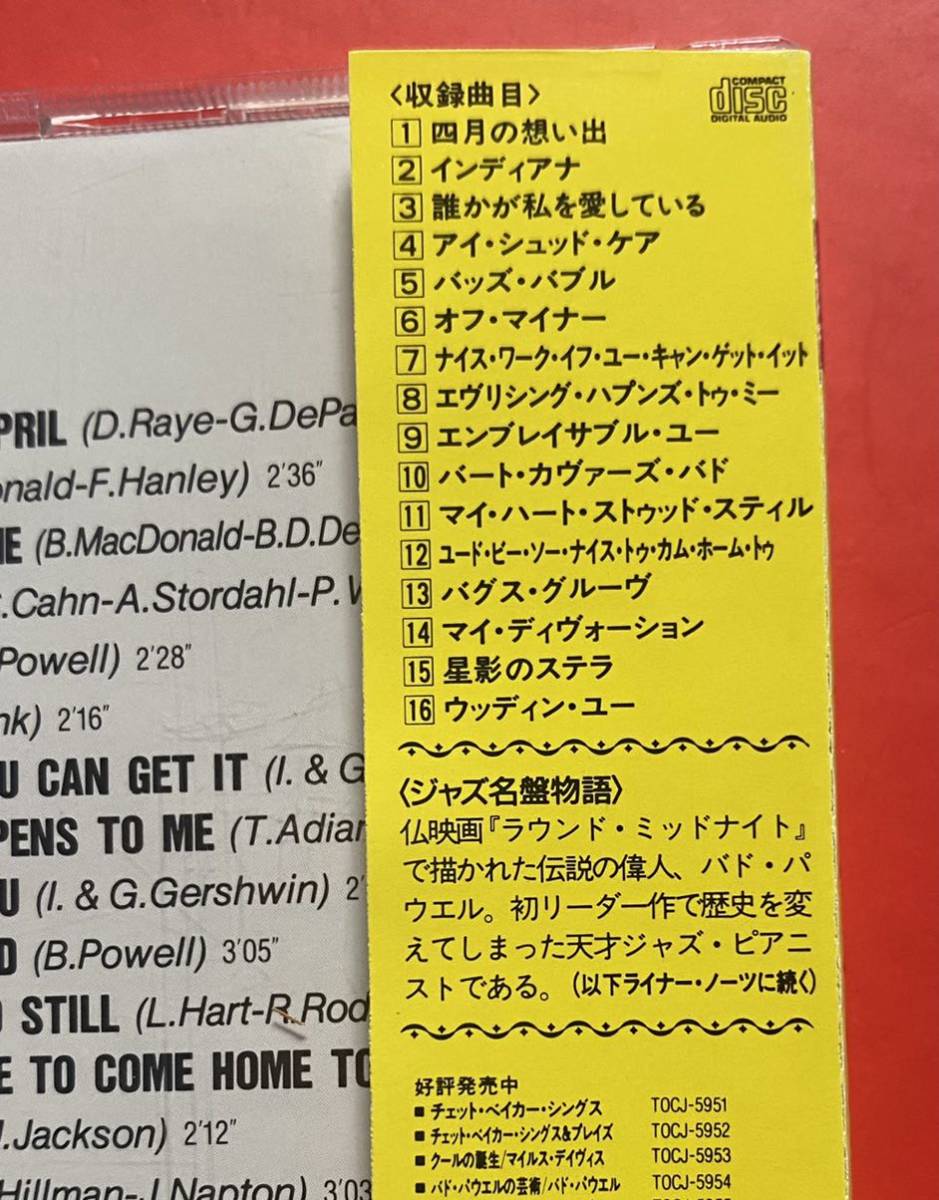 PRIL (D.Raye-G.DePa
nald-F.Hanley) 2'36"
E (B.MacDonald-B.D.De
Cahn-A.Stordahl-P.
Powell) 2'28"
nk) 2'16"
U CAN GET IT (I. & G
PENS TO ME (T.Adiar
U (I. & G.Gershwin) 2'
D (B.Powell) 3'05"
STILL (L.Hart-R.Rod
E TO COME HOME TO
.Jackson) 2'12"
Hillman-J.Napton) 3'03
〈収録曲目〉
COMPACT
disc
DIGITAL AUDIO
1 四月の想い出
2 インディアナ
3 誰かが私を愛している
4 アイ・シュッド・ケア
5 バッズ・バブル
6 オフ・マイナー
7 ナイス・ワーク・イフ・ユー・キャン・ゲット・イット
8 エヴリシング・ハプンズ・トゥ・ミー
9 エンブレイサブル・ユー
10 バート・カヴァーズ・バド
11 マイ・ハート・ストゥッド・スティル
12 ユード・ビー・ソー・ナイス・トゥ・カム・ホーム・トゥ
13 バグス・グルーヴ
14 マイ・ディヴォーション
15 星影のステラ
16 ウッディン・ユー
〈ジャズ名盤物語〉
仏映画『ラウンド・ミッドナイト』
で描かれた伝説の偉人、バド・パ
ウエル。初リーダー作で歴史を変
えてしまった天才ジャズ・ピアニ
ストである。(以下ライナー・ノーツに続く)
好評発売中
■ チェット・ベイカー・シングス TOCJ-5951
■ チェット・ベイカー・シングス&プレイズ TOCJ-5952
■ クールの誕生/マイルス・デイヴィス TOCJ-5953
■ バド・パウエルの芸術/バド・パウエル TOCJ-5954